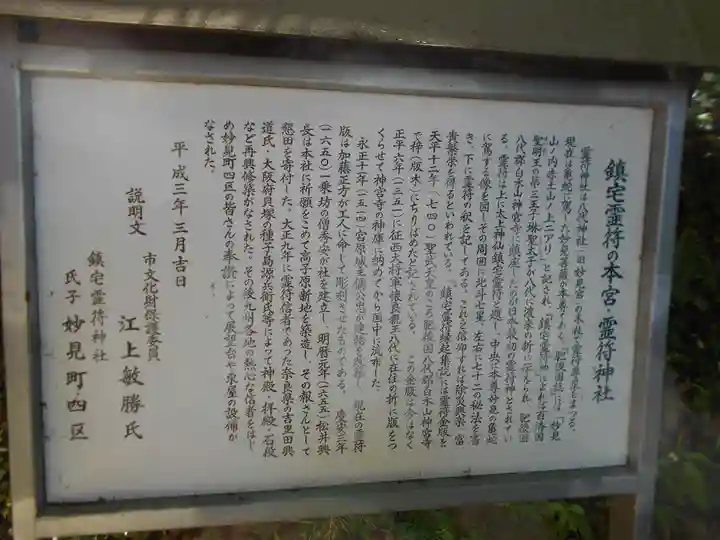 鎮宅霊符の本宮・霊符神社
霊符神社は八代神社(旧妙見宮)の末社で霊符尊星をまつる。
現在は亀蛇に駕した妙見菩薩が本尊である。「肥後国誌」には「妙見
山ノ内赤土山ノ上ニアリ」と記され、「鎮宅霊符神」によれば百済国
聖明王の第三王子琳聖太子が八代に渡来の折に伝えられ、肥後国
八代郡白木山神宮寺に鎮座したのが日本最初の霊符神とされてい
る。霊符は上に太上神仙鎮宅霊符と題し、中央に本尊妙見の亀蛇
に駕する像を図しその周囲に北斗七星、左右に七十二の秘法を書
き、下に霊符の釈を記してある。これを信仰すれば除災興楽・富
貴繁栄を得るといわれている。「鎮宅霊符縁起集説」には霊符金版を
天平十二年(七四〇)聖武天皇のころ肥後国八代郡白木山神宮寺
で梓(版木)にちりばめたと記されている。この金版は今はなく
正平六年(一三五一)に征西大将軍懐良親王八代に在住の折に版をつ
くらせて神宮寺の神庫に納めてから国中に流布した。
永正十一年(一五一四)宮原城主
現在の霊符
版は加藤正方が工人に命じて彫刻させたものである。慶安三年
(一六五〇)一乗坊の僧秀安が社を建立し、明暦元年(一六五五)松井興
長は本社に祈願をこめて高子原新地を築造し、その報さんとして
懇田を寄付した。大正九年に霊符信者であった奈良県の吉里田興
道氏・大阪府貝塚の種子島源兵衛氏等によって神殿・拝殿・石段
など再興修築がなされた。その後九州各地の熱心な信者をはじ
め妙見町四区の皆さんの奉讃によって展望台や東屋の設備が
なされた。
平成三年三月吉日
説明文 市文化財保護委員 江上敏勝氏
鎮宅霊符神社
氏子 妙見町四区